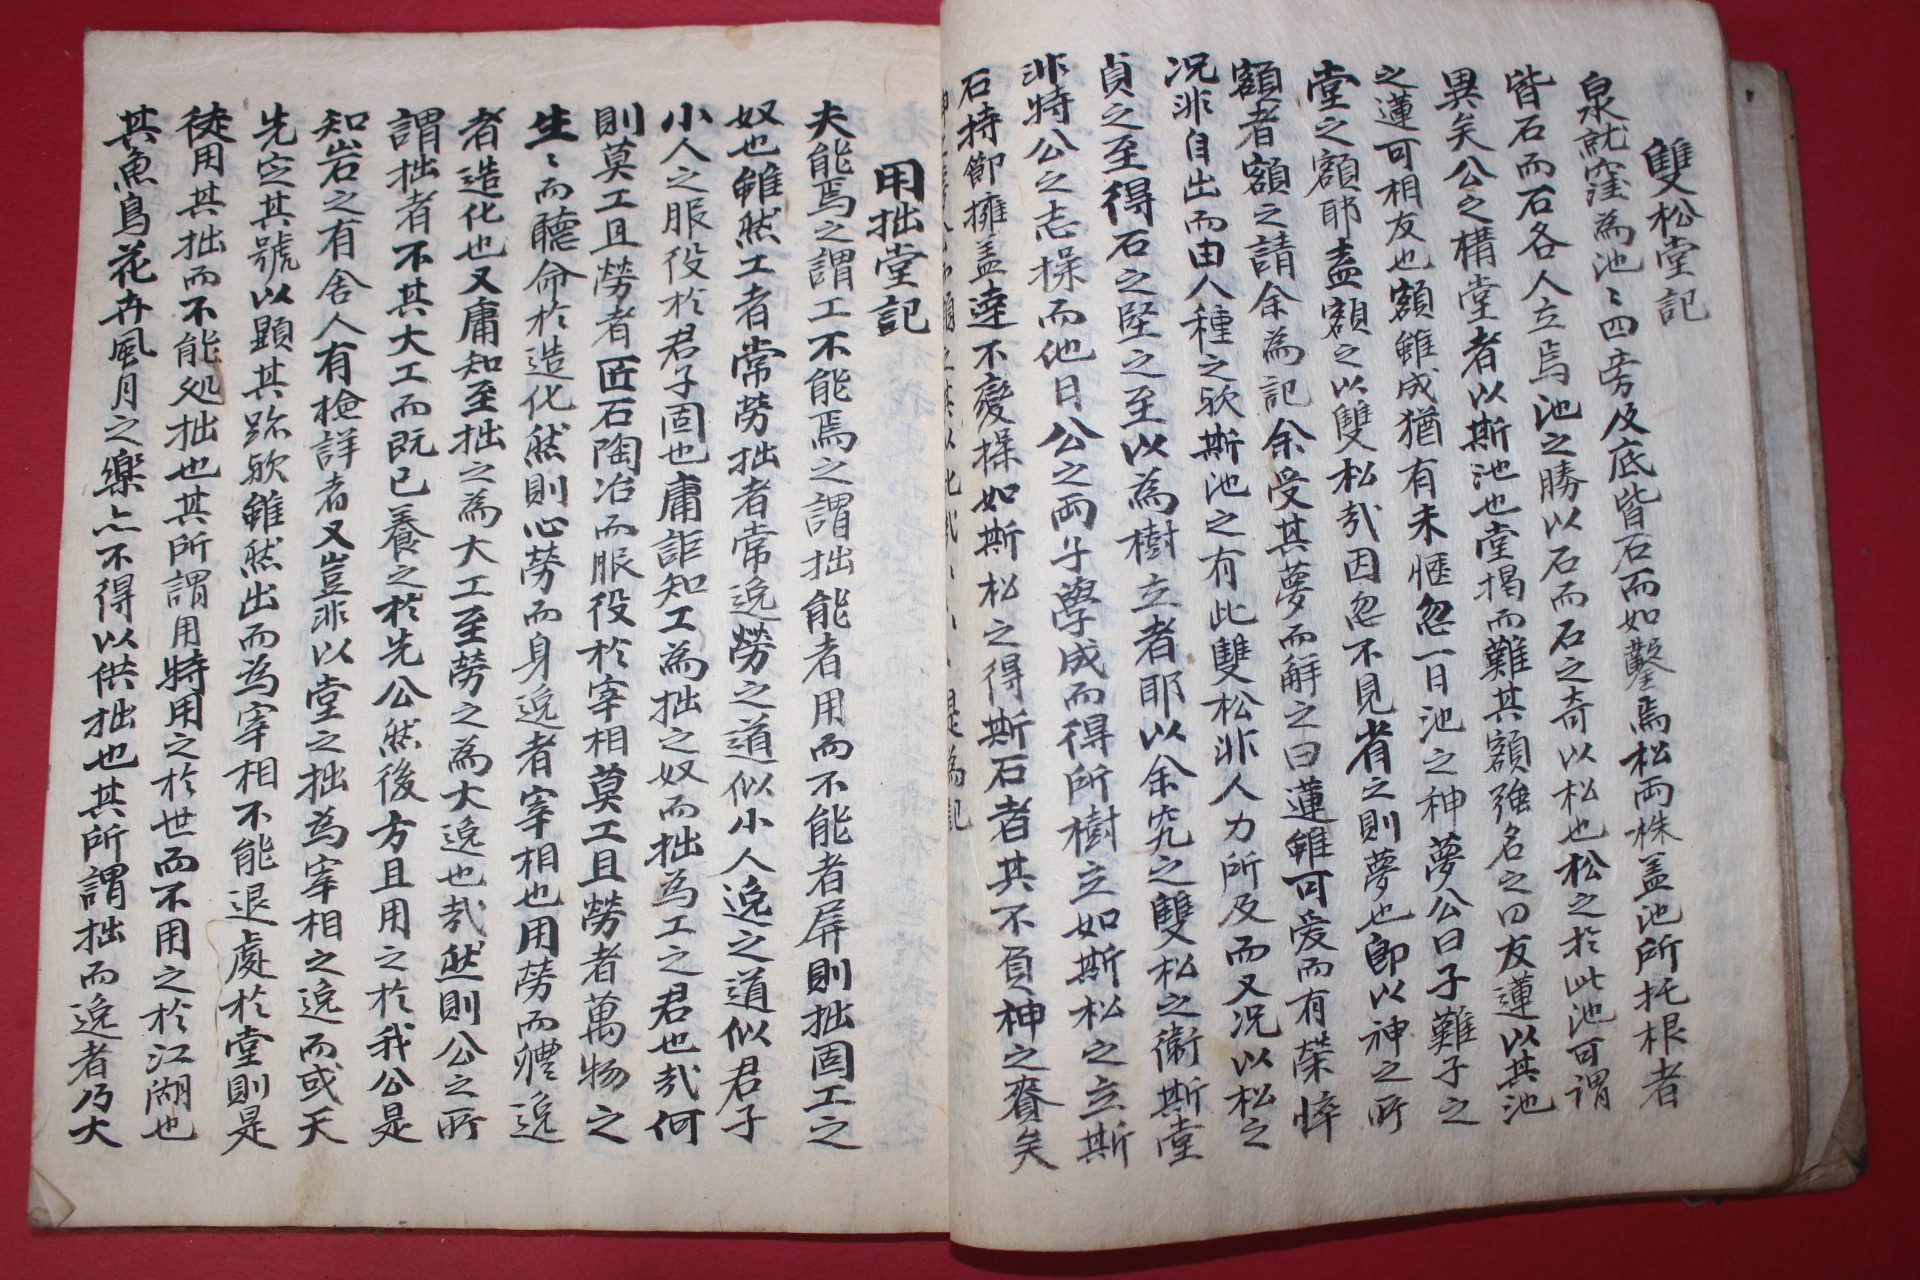 雙松堂記
泉就窪為池〻四旁及底皆石而如鑿焉松兩株盖池所托根者
皆石而石各人立焉池之勝以石而石之奇以松也松之於此池可謂
異矣公之構堂者以斯池也堂揭而難其額強名之曰友蓮以其池
之蓮可相友也額雖成猶有未愜忽一日池之神夢公曰子難子之
堂之額耶盍額之以雙松哉因忽不見省之則夢也卽以神之所
額者額之請余為記余受其夢而解之曰蓮雖可爱而有榮悴
况非自出而由人種之欤斯池之有此雙松非人力所及而又况以松之
貞之至得石之堅之至以為樹立者耶以余究之雙松之衛斯堂
非特公之志操而他日公之兩子學成而得所樹立如斯松之立斯
石持節擁盖達不變操如斯松之得斯石者其不負神之賚矣
是為記
用拙堂記
夫能焉之謂工不能焉之謂拙能者用而不能者屏則拙固工之
奴也雖然工者常勞拙者常逸勞之道似小人逸之道似君子
小人之服役於君子固也庸詎知工為拙之奴而拙為工之君也哉何
則莫工且勞者匠石陶冶而服役於宰相莫工且勞者萬物之
生〻而聽命於造化然則心勞而身逸者宰相也用勞而軆逸
者造化也又庸知至拙之為大工至勞之為大逸也哉然則公之所
謂拙者不其大工而旣已養之於先公然後方且用之於我公是
知岩之有舍人有檢詳者又豈非以堂之拙為宰相之逸而或天
先定其號以顯其跡欤雖然出而為宰相不能退處於堂則是
徒用其拙而不能処拙也其所謂用特用之於世而不用之於江湖也
其魚鳥花卉風月之樂亦不得以供拙也其所謂拙而逸者乃大